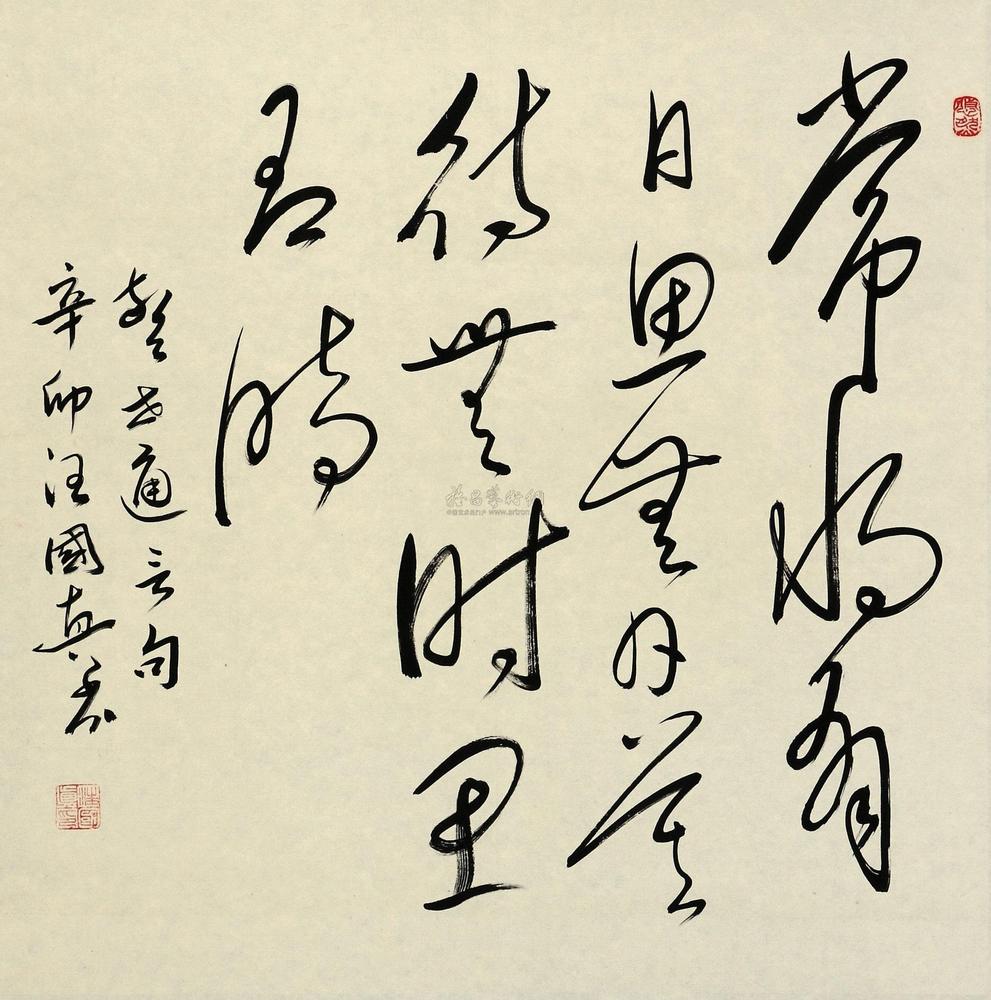 常將有
日思無日莫
待無時思
有時
警世通言句
辛卯汪國真書
雅昌藝術網